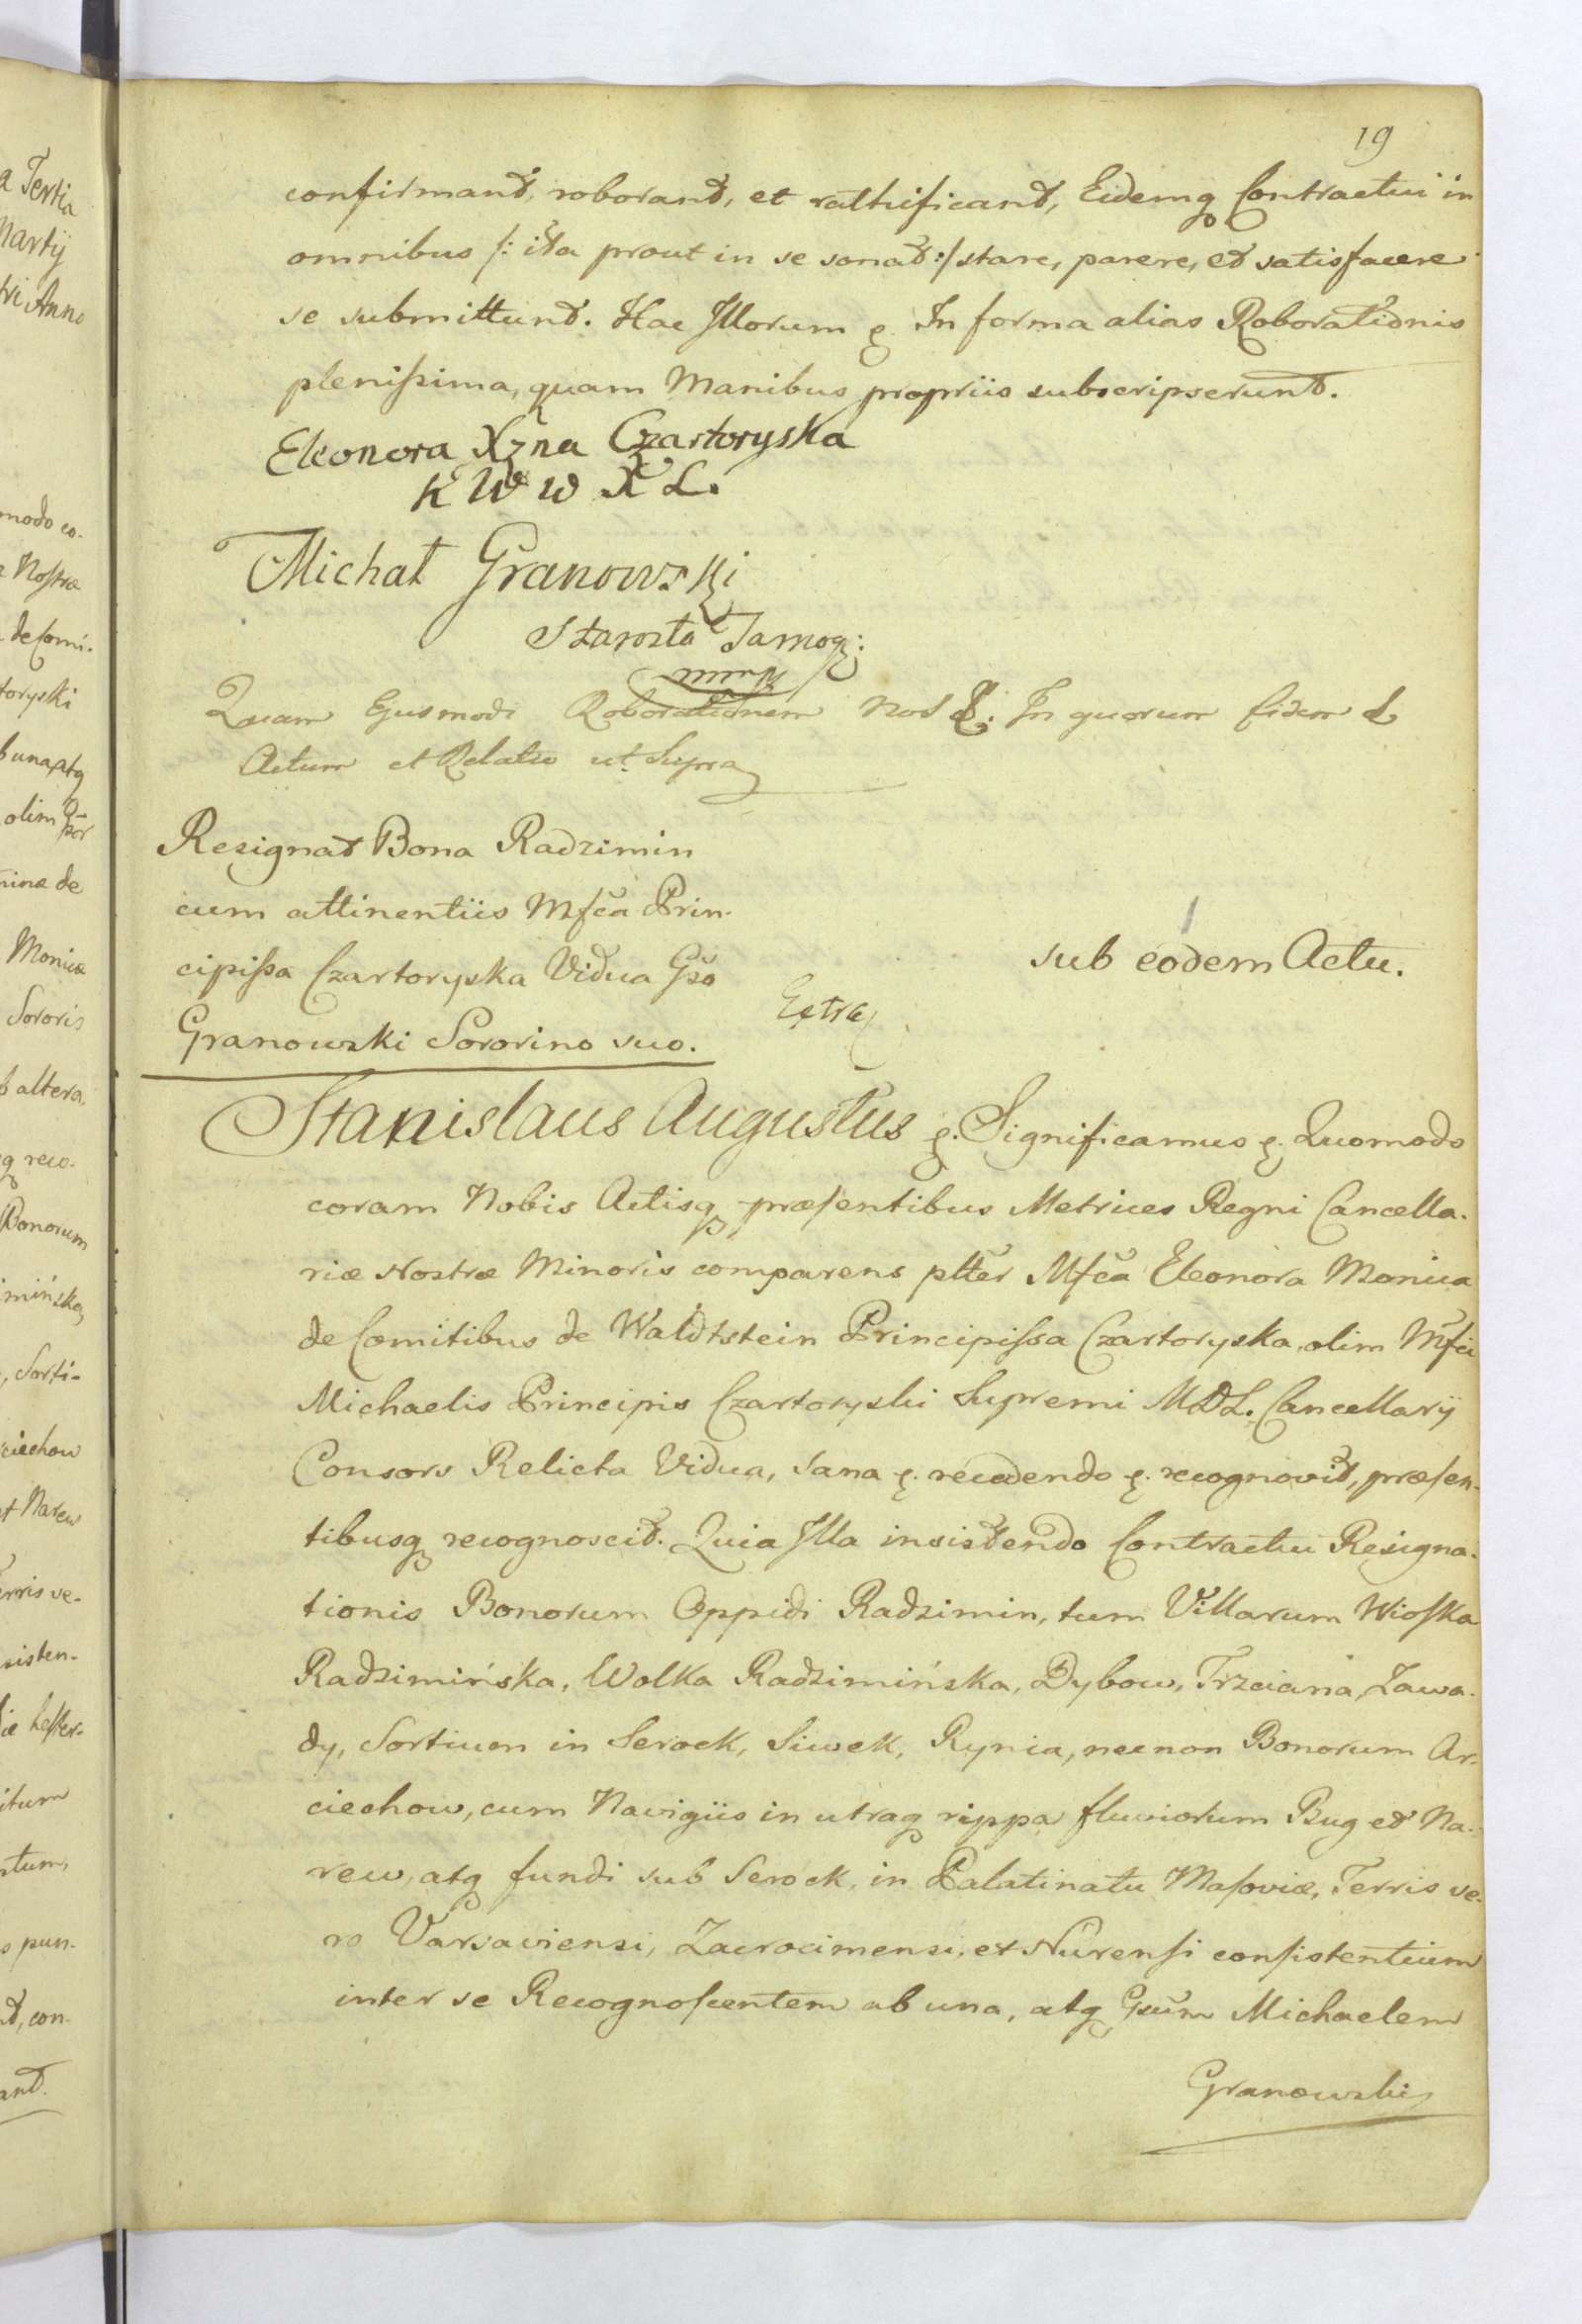 19
confirmant, roborant, et rathificant, Eidemq Contractui in
omnibus /: ita prout in se sonat :/ stare, parere, et satisfacere
se submittunt. Hac Illorum &. In forma alias Roborationis
plenissima, quam Manibus propriis subscripserunt.
Eleonora Xżna Czartoryska
K W W X L.
Michał Granowski
Starosta Tarnog:
mmp
Quam Ejusmodi Roborationem Nos &. In quorum fidem &
Actum et Relatio ut Supra
Resignat Bona Radzimin
cum attinentiis Mfca Prin-
cipissa Czartoryska Vidua Gso
Granowski Sororino suo.
sub eodem Actu.
Extra
Stanislaus Augustus &. Significamus &. Quomodo
coram Nobis Actisq præsentibus Metrices Regni Cancella-
riæ Nostræ Minoris comparens plter Mfca Eleonora Monica
de Comitibus de Waldtstein Principissa Czartoryska, olim Mfci
Michaelis Principis Czartoryski Supremi MDL. Cancellarij
Consors Relicta Vidua, sana &. recedendo &. recognovit, præsen-
tibusq recognoscit. Quia Illa insistendo Contractui Resigna-
tionis Bonorum Oppidi Radzimin, tum Villarum Wioska
Radzimińska, Wolka Radzimińska, Dybow, Trzciana, Zawa-
dy, Sortium in Serock, Siwek, Rynia, necnon Bonorum Ar-
ciechow, cum Navigiis in utraq rippa fluviorum Bug et Na-
rew, atq fundi sub Serock, in Palatinatu Masoviæ, Terris ve-
ro Varsaviensi, Zacrocimensi, et Nurensi consistentium
inter se Recognoscentem ab una, atq Gsum Michaelem
Granowski